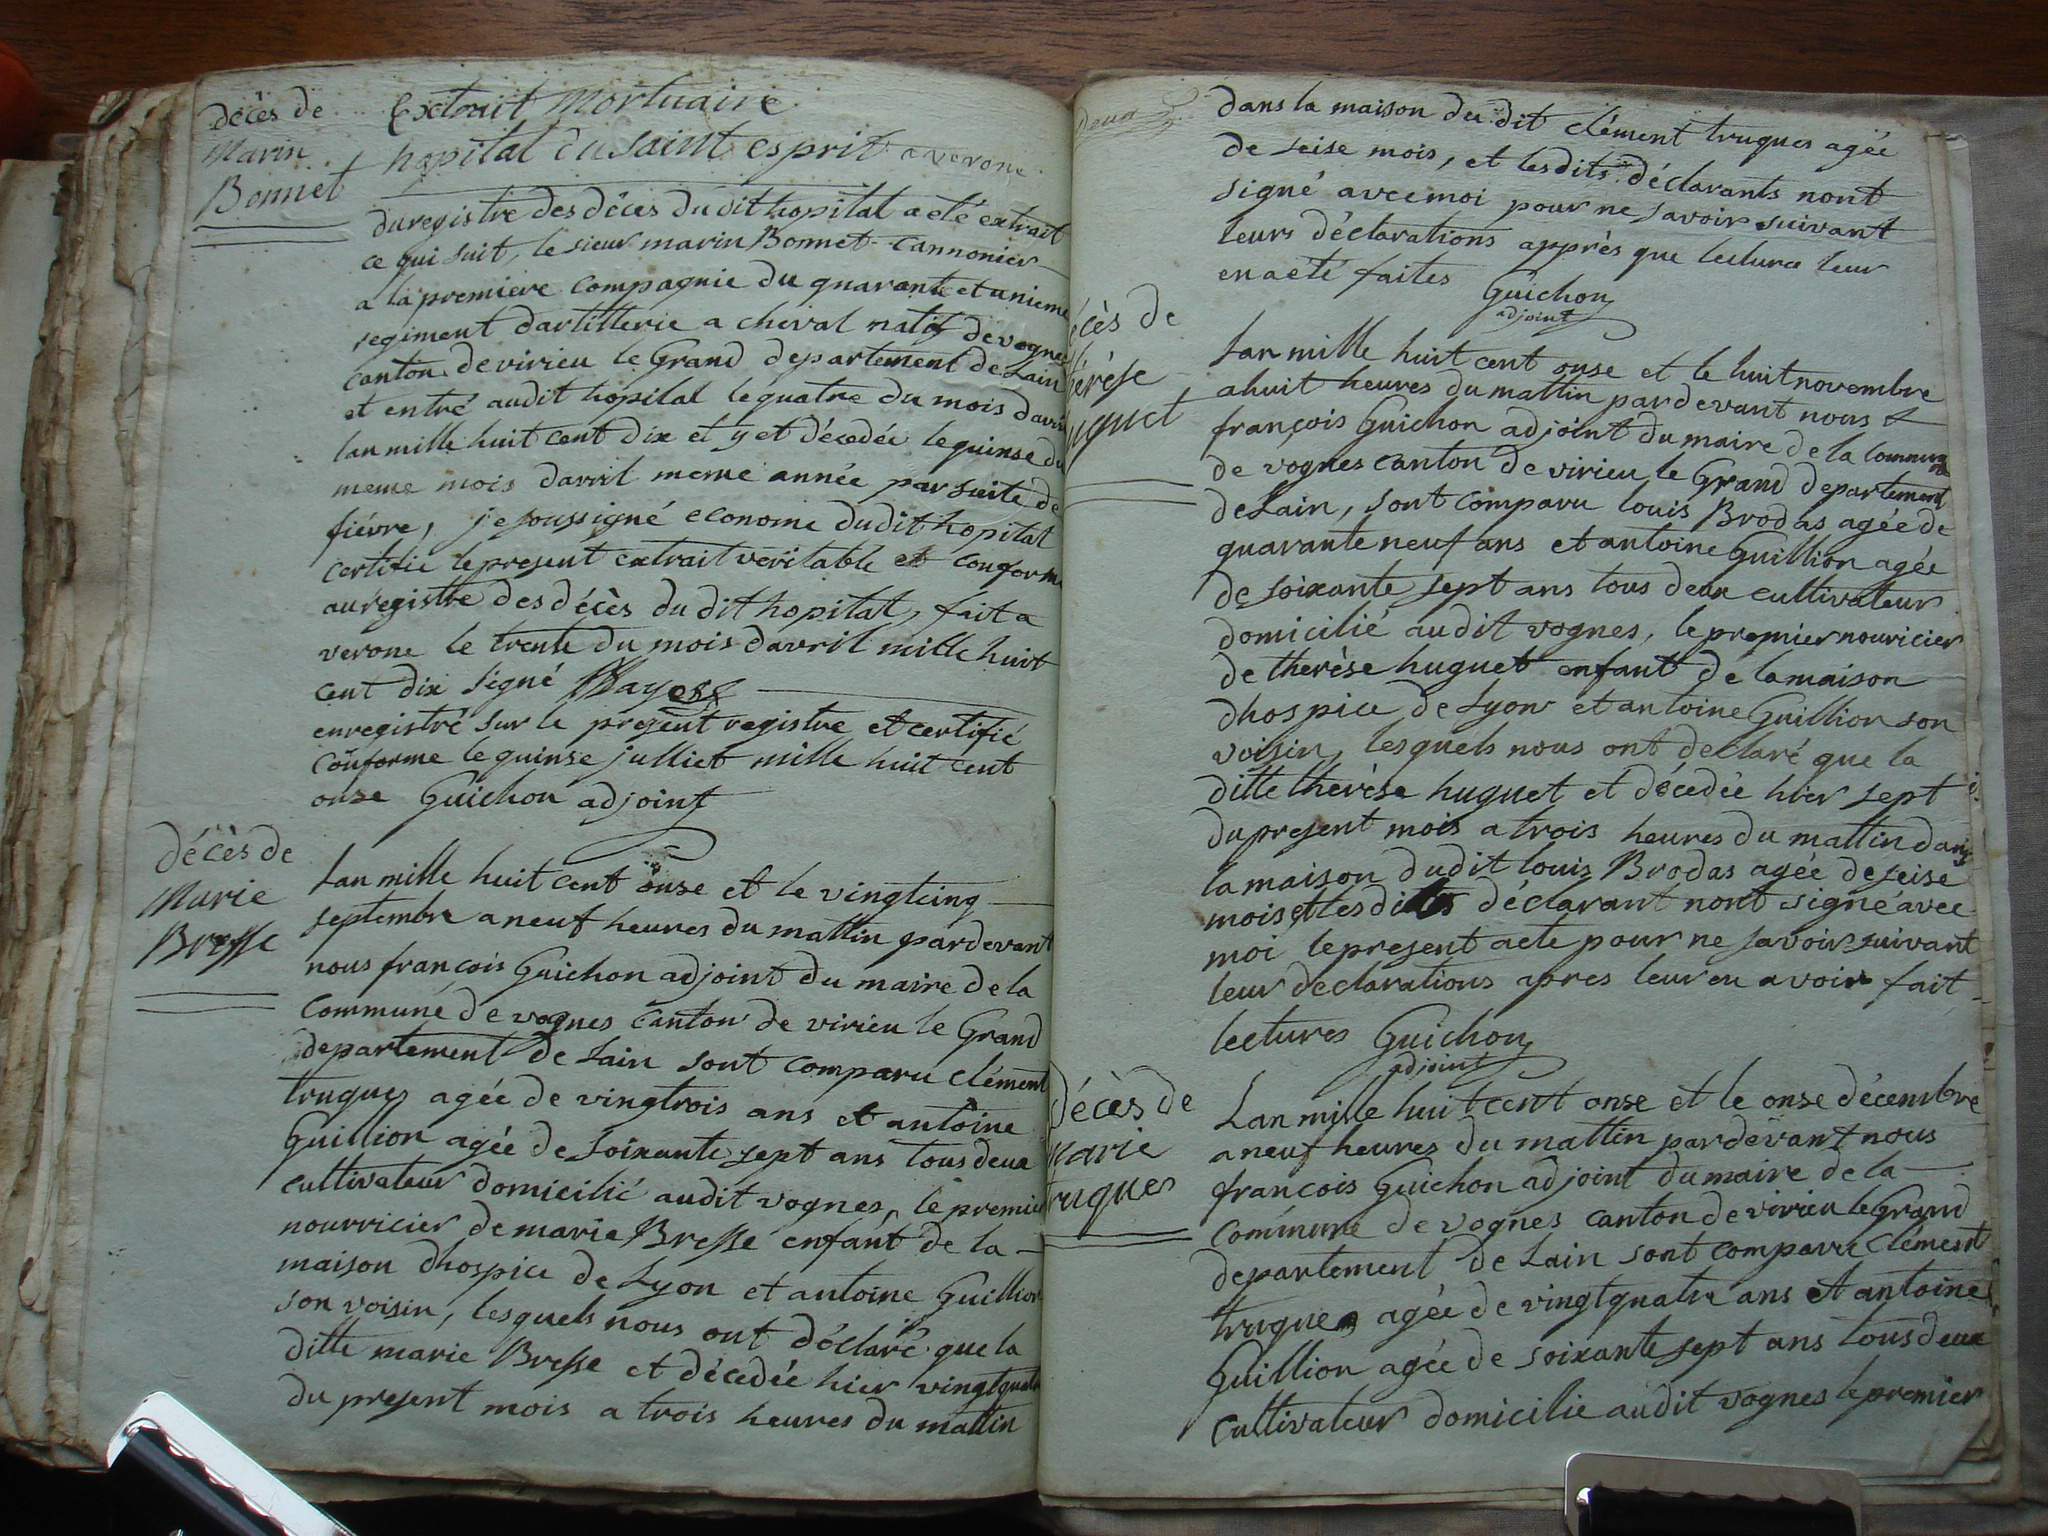 décès de
Marin
Bonnet
Extrait Mortuaire
hopital du saint esprit a verone
du registre des déces du dit hopital a eté extrait
ce qui suit, le sieur marin Bonnet cannonier
a la premiere compagnie du quarante et unieme
regiment dartillerie a cheval natif de vognes
canton de virieu le Grand departement de Lain
et entré audit hopital le quatre du mois davril
lan mille huit cent dix et y et décedée le quinse du
meme mois davril meme année par suite de
fiévre, je soussigné econome du dit hopital
certifie le present extrait veritable et conforme
au registre des décès du dit hopital, fait a
verone le trente du mois davril mille huit
cent dix signé
enregistré sur le present registre et certifié
conforme le quinse julliet mille huit cent
onse Guichon adjoint
décès de
Marie
Bresse
Lan mille huit cent onse et le vingtcinq
septembre a neuf heures du mattin pardevant
nous françois Guichon adjoint du maire de la
commune de vognes canton de virieu le Grand
departement de Lain sont comparu clément
truques agée de vingtrois ans et antoine
Guillion agée de soixante sept ans tous deux
cultivateur domicilié audit vognes, le premier
nourricier de marie Bresse enfant de la
maison dhospice de Lyon et antoine Guillion
son voisin, lesquels nous ont déclaré que la
ditte marie Bresse et décedée hier vingtquatre
du present mois a trois heures du mattin
deux
dans la maison du dit clément truques agée
de seise mois, et lesdits déclarants nont
signé avec moi pour ne savoir suivant
leurs déclarations apprès que lecture leur
en a été faites Guichon
adjoint
écès de
érése
uguet
Lan mille huit cent onse et le huit novembre
a huit heures du mattin pardevant nous
françois Guichon adjoint du maire de la commune
de vognes canton de virieu le Grand departement
de Lain, sont comparu louis Brodas agée de
quarante neuf ans et antoine Guillion agée
de soixante sept ans tous deux cultivateur
domicilié audit vognes, le premier nouricier
de therèse huguet enfant de la maison
dhospice de Lyon et antoine Guillion son
voisin, lesquels nous ont declaré que la
ditte therèse huguet et décedée hier sept
du present mois a trois heures du mattin dans
la maison dudit louis Brodas agée de seise
mois et lesdits déclarant nont signé avec
moi le present acte pour ne savoir suivant
leur declarations apres leur en avoir fait
lectures Guichon
adjoint
décès de
Marie
truques
Lan mille huit cent onse et le onse décembre
a neuf heures du mattin pardevant nous
françois Guichon adjoint du maire de la
commune de vognes canton de virieu le Grand
departement de Lain sont comparu Clément
truques agée de vingtquatre ans et antoine
Guillion agée de soixante sept ans tous deux
cultivateur domicilie audit vognes le premier